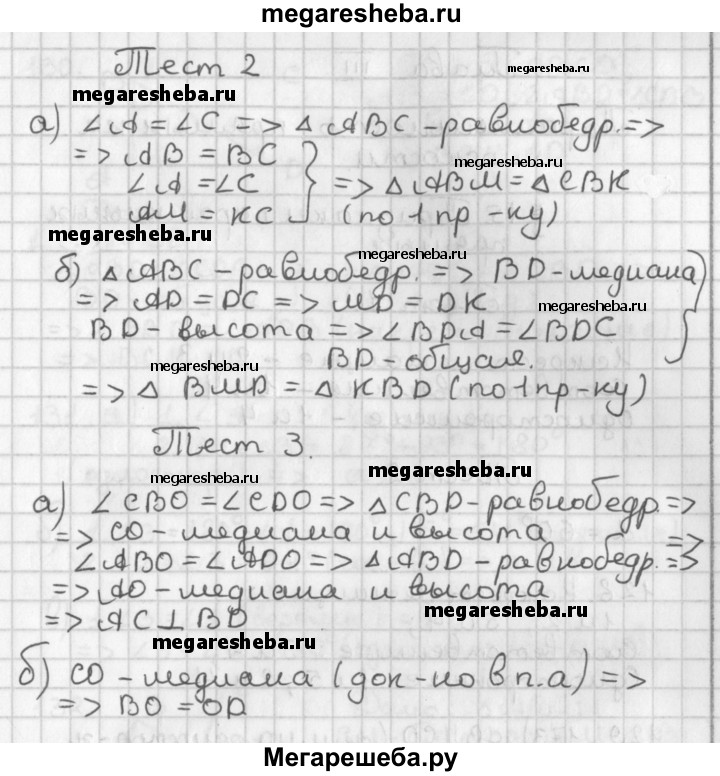 megaresheba.ru
Тест 2
megaresheba.ru
megaresheba.ru
а) ∠A = ∠C => △ABC - равнобедр. =>
=> AB = BC
megaresheba.ru
∠A = ∠C => △ABM = △CBK
AM = KC (по 1 пр-ку)
megaresheba.ru
б) △ABC - равнобедр. => BD - медиана
=> AD = DC => MD = DK
megaresheba.ru
BD - высота => ∠BDA = ∠BDC
BD - общая.
megaresheba.ru
=> △ BMD = △ KBD (по 1 пр-ку)
Тест 3.
megaresheba.ru
megaresheba.ru
а) ∠CBO = ∠CDO => △CBD - равнобедр. =>
=> CO - медиана и высота =>
∠ABO = ∠ADO => △ABD - равнобедр. =>
=> AO - медиана и высота
megaresheba.ru
=> AC ⊥ BD
megaresheba.ru
б) CO - медиана (док-но в п.а) =>
=> BO = OD
Мегарешеба.ру